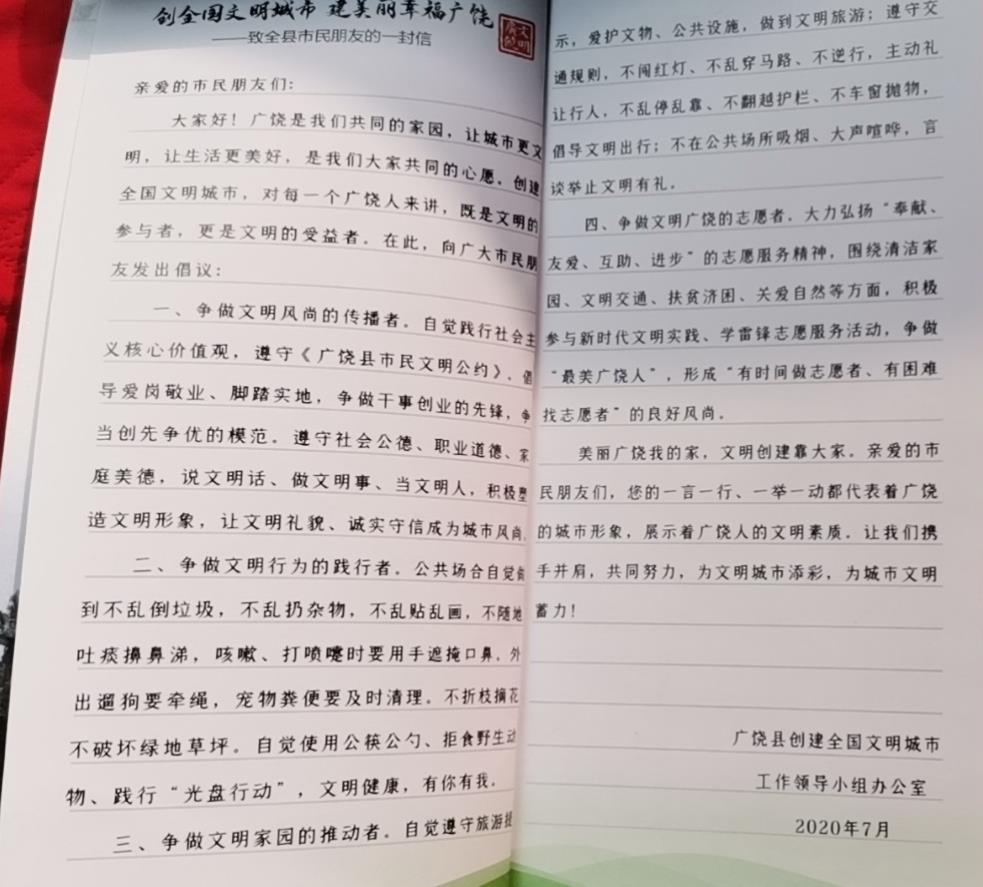 创全国文明城市 建美丽幸福广饶
文明
广饶
——致全县市民朋友的一封信
亲爱的市民朋友们：
大家好！广饶是我们共同的家园，让城市更文
明，让生活更美好，是我们大家共同的心愿。创建
全国文明城市，对每一个广饶人来讲，既是文明的
参与者，更是文明的受益者。在此，向广大市民朋
友发出倡议：
一、争做文明风尚的传播者。自觉践行社会主
义核心价值观，遵守《广饶县市民文明公约》，倡
导爱岗敬业、脚踏实地，争做干事创业的先锋，争
当创先争优的模范。遵守社会公德、职业道德、家
庭美德，说文明话、做文明事、当文明人，积极塑
造文明形象，让文明礼貌、诚实守信成为城市风尚。
二、争做文明行为的践行者。公共场合自觉做
到不乱倒垃圾，不乱扔杂物，不乱贴乱画，不随地
吐痰擤鼻涕，咳嗽、打喷嚏时要用手遮掩口鼻，外
出遛狗要牵绳，宠物粪便要及时清理。不折枝摘花
不破坏绿地草坪。自觉使用公筷公勺、拒食野生动
物、践行“光盘行动”，文明健康，有你有我。
三、争做文明家园的推动者。自觉遵守旅游提
示，爱护文物、公共设施，做到文明旅游；遵守交
通规则，不闯红灯、不乱穿马路、不逆行，主动礼
让行人，不乱停乱靠、不翻越护栏、不车窗抛物，
倡导文明出行；不在公共场所吸烟、大声喧哗，言
谈举止文明有礼。
四、争做文明广饶的志愿者。大力弘扬“奉献、
友爱、互助、进步”的志愿服务精神，围绕清洁家
园、文明交通、扶贫济困、关爱自然等方面，积极
参与新时代文明实践、学雷锋志愿服务活动，争做
“最美广饶人”，形成“有时间做志愿者、有困难
找志愿者”的良好风尚。
美丽广饶我的家，文明创建靠大家。亲爱的市
民朋友们，您的一言一行、一举一动都代表着广饶
的城市形象，展示着广饶人的文明素质。让我们携
手并肩，共同努力，为文明城市添彩，为城市文明
蓄力！
广饶县创建全国文明城市
工作领导小组办公室
2020年7月